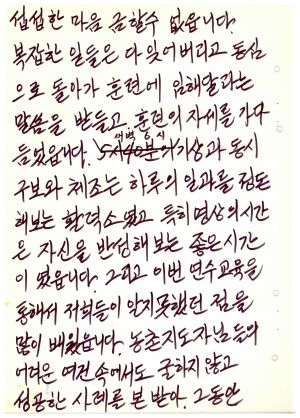 섭섭한 마음 금할수 없읍니다.
복잡한 일들은 다 잊어버리고 동심
으로 돌아가 훈련에 임해달라는
말씀을 받들고 훈련의 자세를 가다
듬었읍니다. 새벽 5시 기상과 동시
구보와 체조는 하루의 일과를 점돈
해보는 활력소였고 특히 명상의 시간
은 자신을 반성해 보는 좋은 시간
이 였읍니다. 그리고 이번 연수교육을
통해서 저희들이 알지 못했던 점을
많이 배웠읍니다. 농촌지도자님들의
어려운 여건 속에서도 굴하지 않고
성공한 사례를 본 받아. 그동안